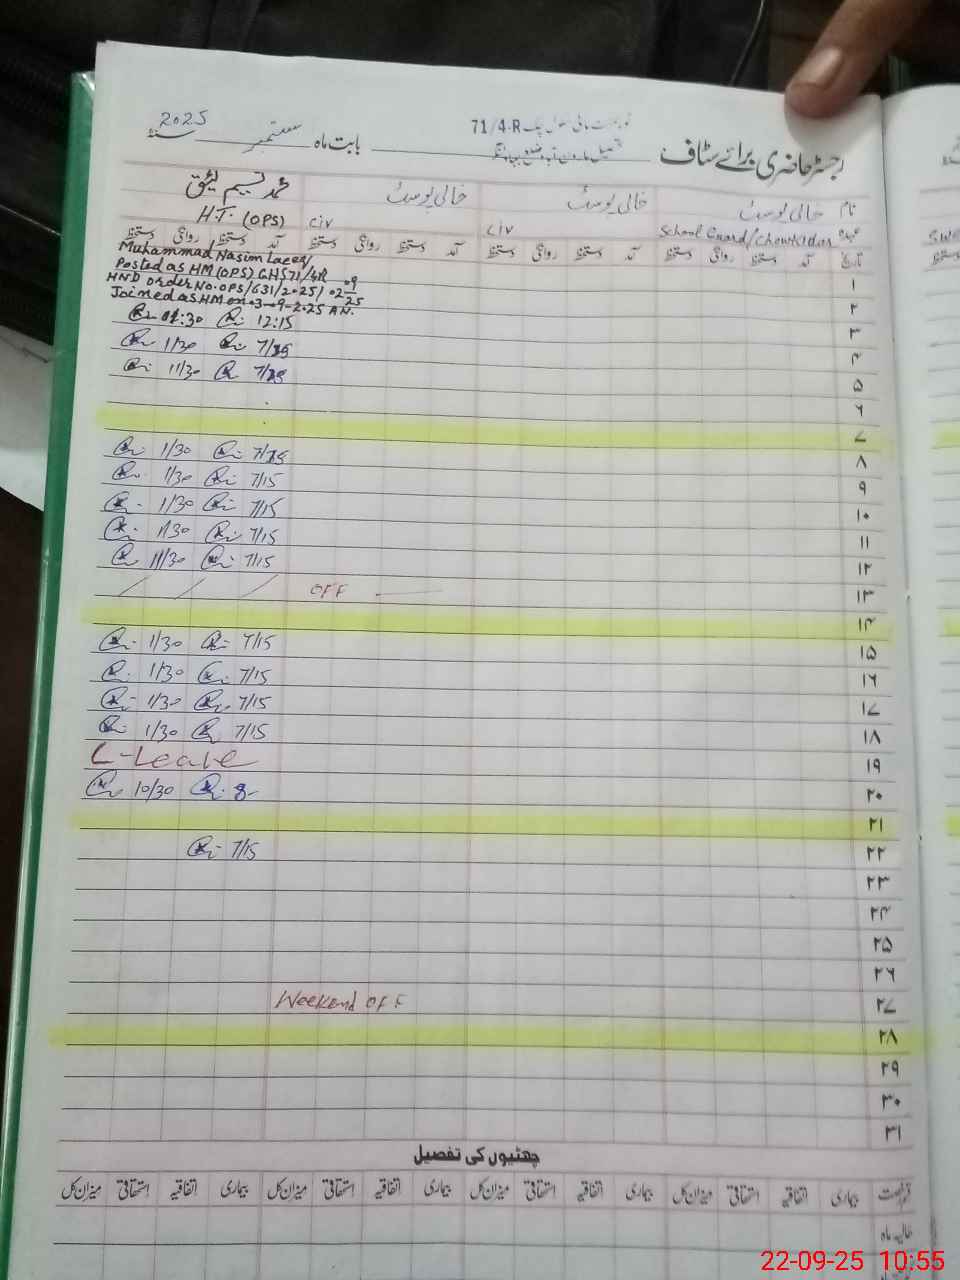 رجسٹر حاضری برائے سٹاف
71/4-R
بابت ماہ ستمبر سنہ 2025
نام خالی پوسٹ خالی پوسٹ خالی پوسٹ محمد نسیم لئیق
عہدہ School Guard/Chowkidar C/V C/V H.T. (OPS)
تاریخ آمد دستخط روانگی دستخط آمد دستخط روانگی دستخط آمد دستخط روانگی دستخط آمد دستخط روانگی دستخط
Muhammad Nasim Laeeq
Posted as HM (OPS) GHS 71/4R
HND order No. OPS/631/2025/
Joined as HM on 03-9-2025 A.N.
۱
۲
۳ 12:15
۴ 1/30
۵ 11/30
۶
۷
۸ 1/30
۹ 7/15 1/30
۱۰ 7/15 1/30
۱۱ 7/15 11/30
۱۲ 7/15 11/30
۱۳ OFF
۱۴
۱۵ 7/15 1/30
۱۶ 7/15 1/30
۱۷ 7/15 1/30
۱۸ 7/15 1/30
۱۹ C-Leave
۲۰ 8- 10/30
۲۱
۲۲ 7/15
۲۳
۲۴
۲۵
۲۶
۲۷ Weekend OFF
۲۸
۲۹
۳۰
۳۱
چھٹیوں کی تفصیل
قسم رخصت بیماری اتفاقیہ استحقاقی میزان کل بیماری اتفاقیہ استحقاقی میزان کل بیماری اتفاقیہ استحقاقی میزان کل بیماری اتفاقیہ استحقاقی میزان کل
حالیہ ماہ
22-09-25 10:55